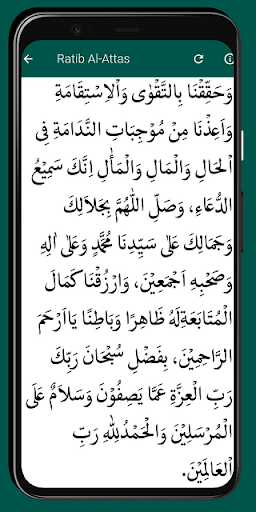 Ratib Al-Attas
وَحَقِّقْنَا بِالتَّقْوٰى وَاْلاِسْتِقَامَةِ
وَاَعِذْنَا مِنْ مُوْجِبَاتِ النَّدَامَةِ فِى
اْلحَالِ وَالْمَالِ وَالْمَأٰلِ اِنَّكَ سَمِيْعُ
الدُّعَاءِ، وَصَلِّ اللّٰهُمَّ بِجَلاَلِكَ
وَجَمَالِكَ عَلىٰ سَيِّدِنَا مُحَمَّدٍ وَعَلىٰ اٰلِهِ
وَصَحْبِهِ اَجْمَعِيْنَ، وَارْزُقْنَا كَمَالَ
الْمُتَابَعَةِلَهُ ظَاهِرًا وَبَاطِنًا يَااَرْحَمَ
الرَّاحِمِيْنَ، بِفَضْلِ سُبْحَانَ رَبِّكَ
رَبِّ الْعِزَّةِ عَمَّا يَصِفُوْنَ وَسَلاَمٌ عَلَى
الْمُرْسَلِيْنَ وَالْحَمْدُلِلّٰهِ رَبِّ
اْلعَالَمِيْنَ.